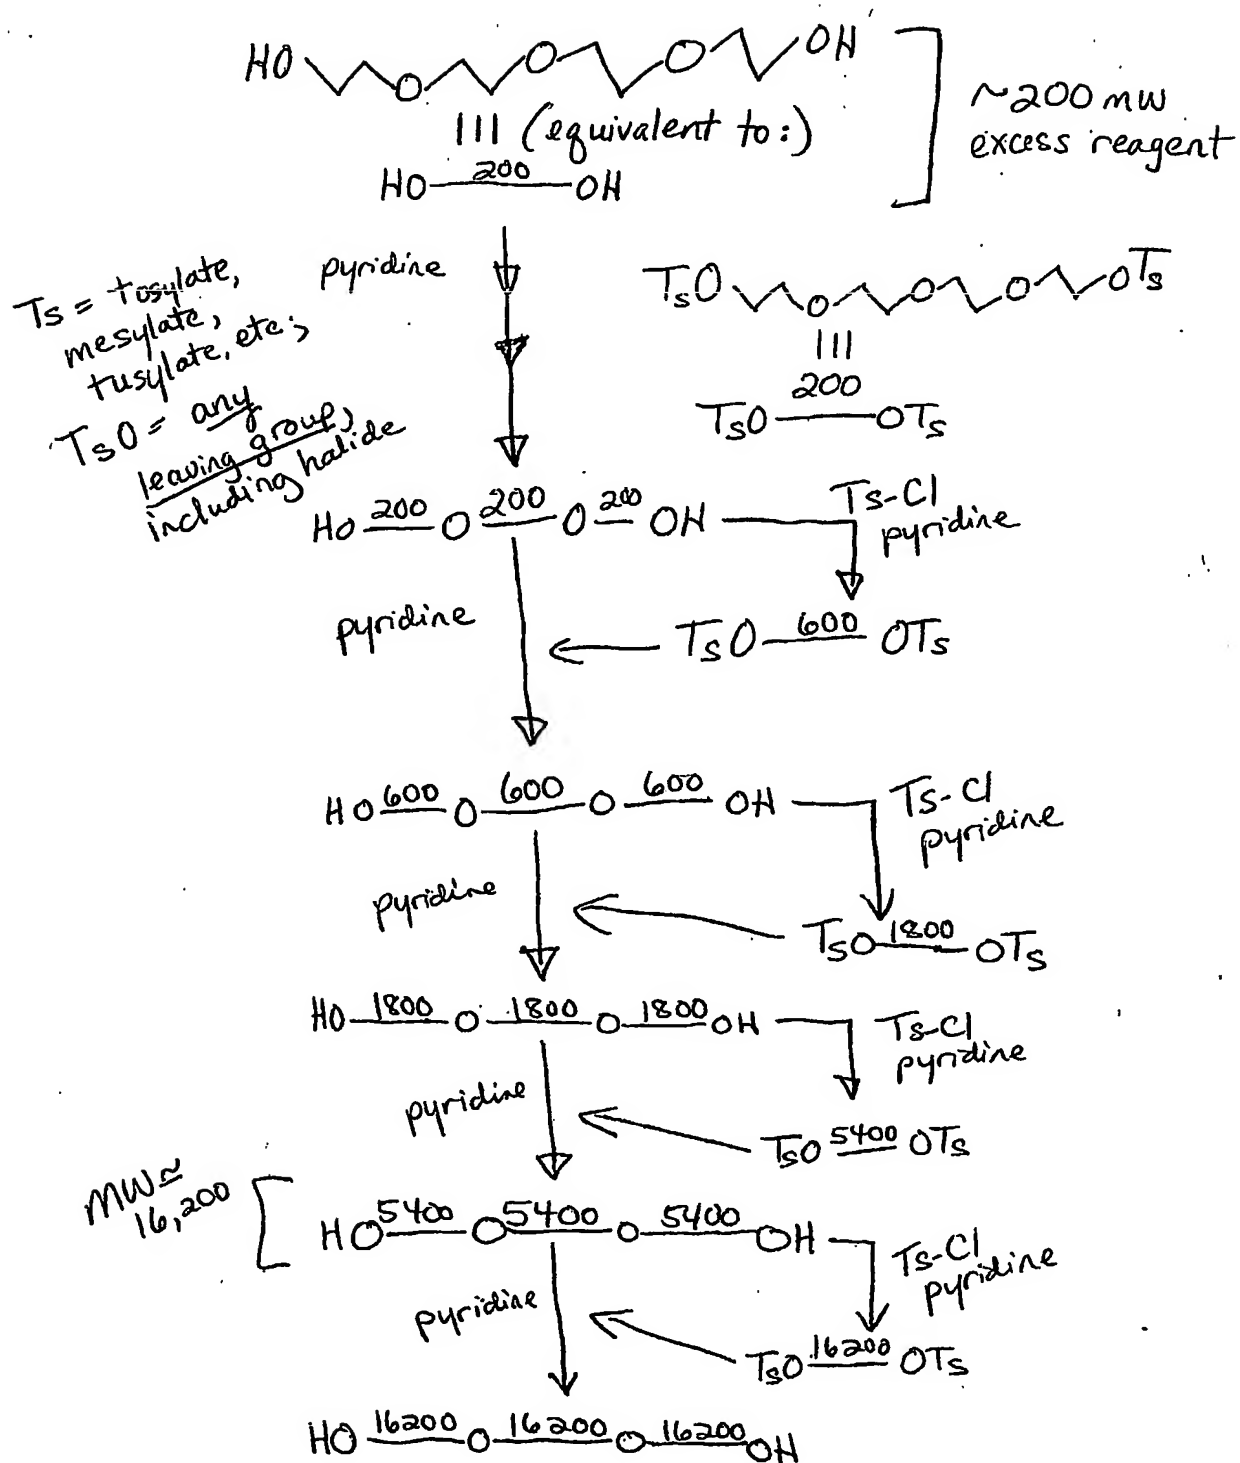 HO O O O OH
||| (equivalent to:)
HO 200 OH
~200 mw
excess reagent
pyridine
Ts = tosylate,
mesylate,
tusylate, etc;
TsO = any
leaving group,
including halide
TsO O O O OTs
|||
200
TsO OTs
HO 200 O 200 O 200 OH
Ts-Cl
pyridine
pyridine
TsO 600 OTs
HO 600 O 600 O 600 OH
Ts-Cl
pyridine
pyridine
TsO 1800 OTs
HO 1800 O 1800 O 1800 OH
Ts-Cl
pyridine
pyridine
TsO 5400 OTs
MW≃
16,200
HO 5400 O 5400 O 5400 OH
Ts-Cl
pyridine
pyridine
TsO 16200 OTs
HO 16200 O 16200 O 16200 OH